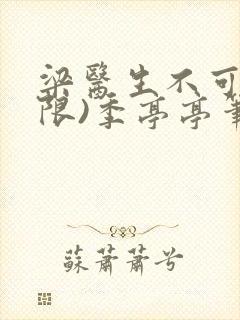 梁醫生不可
限)季亭亭筆
蘇蕭蕭兮